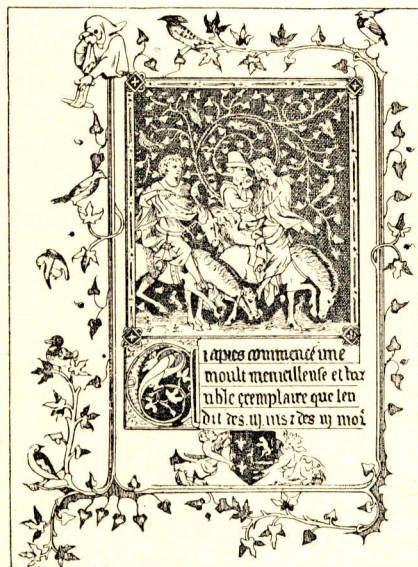 Ci apres commence une
moult merueilleuse et hor
rible exemplaire que len
dit des .iij. uis z des iij mor